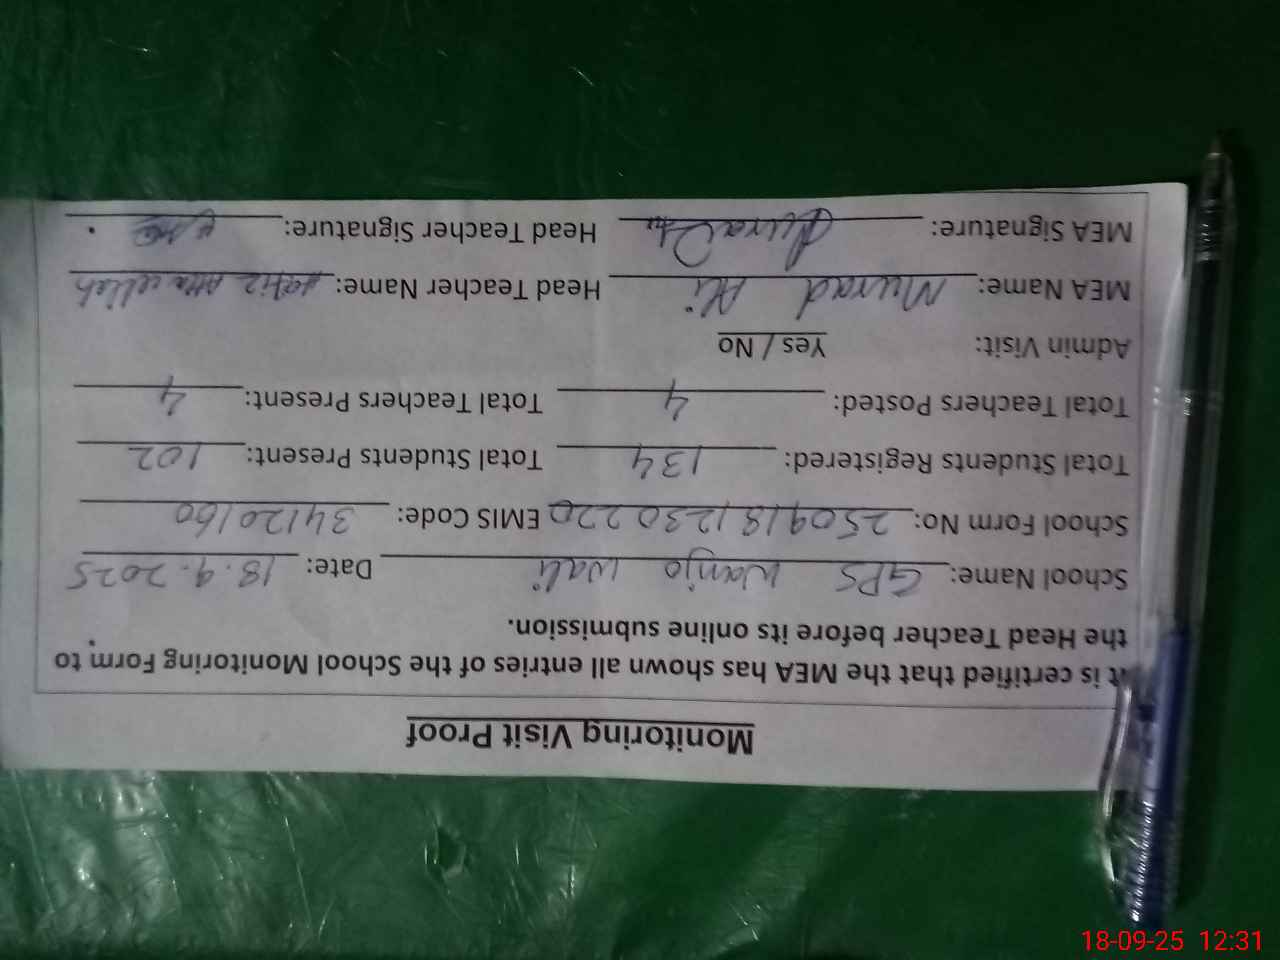 Monitoring Visit Proof
It is certified that the MEA has shown all entries of the School Monitoring Form to
the Head Teacher before its online submission.
School Name: GPS Wanjo Wali Date: 18.9.2025
School Form No: 2509181230220 EMIS Code: 34120160
Total Students Registered: 134 Total Students Present: 102
Total Teachers Posted: 4 Total Teachers Present: 4
Admin Visit: Yes / No
MEA Name: Murad Ali Head Teacher Name: Hafiz Atta ullah
MEA Signature: Head Teacher Signature:
18-09-25 12:31